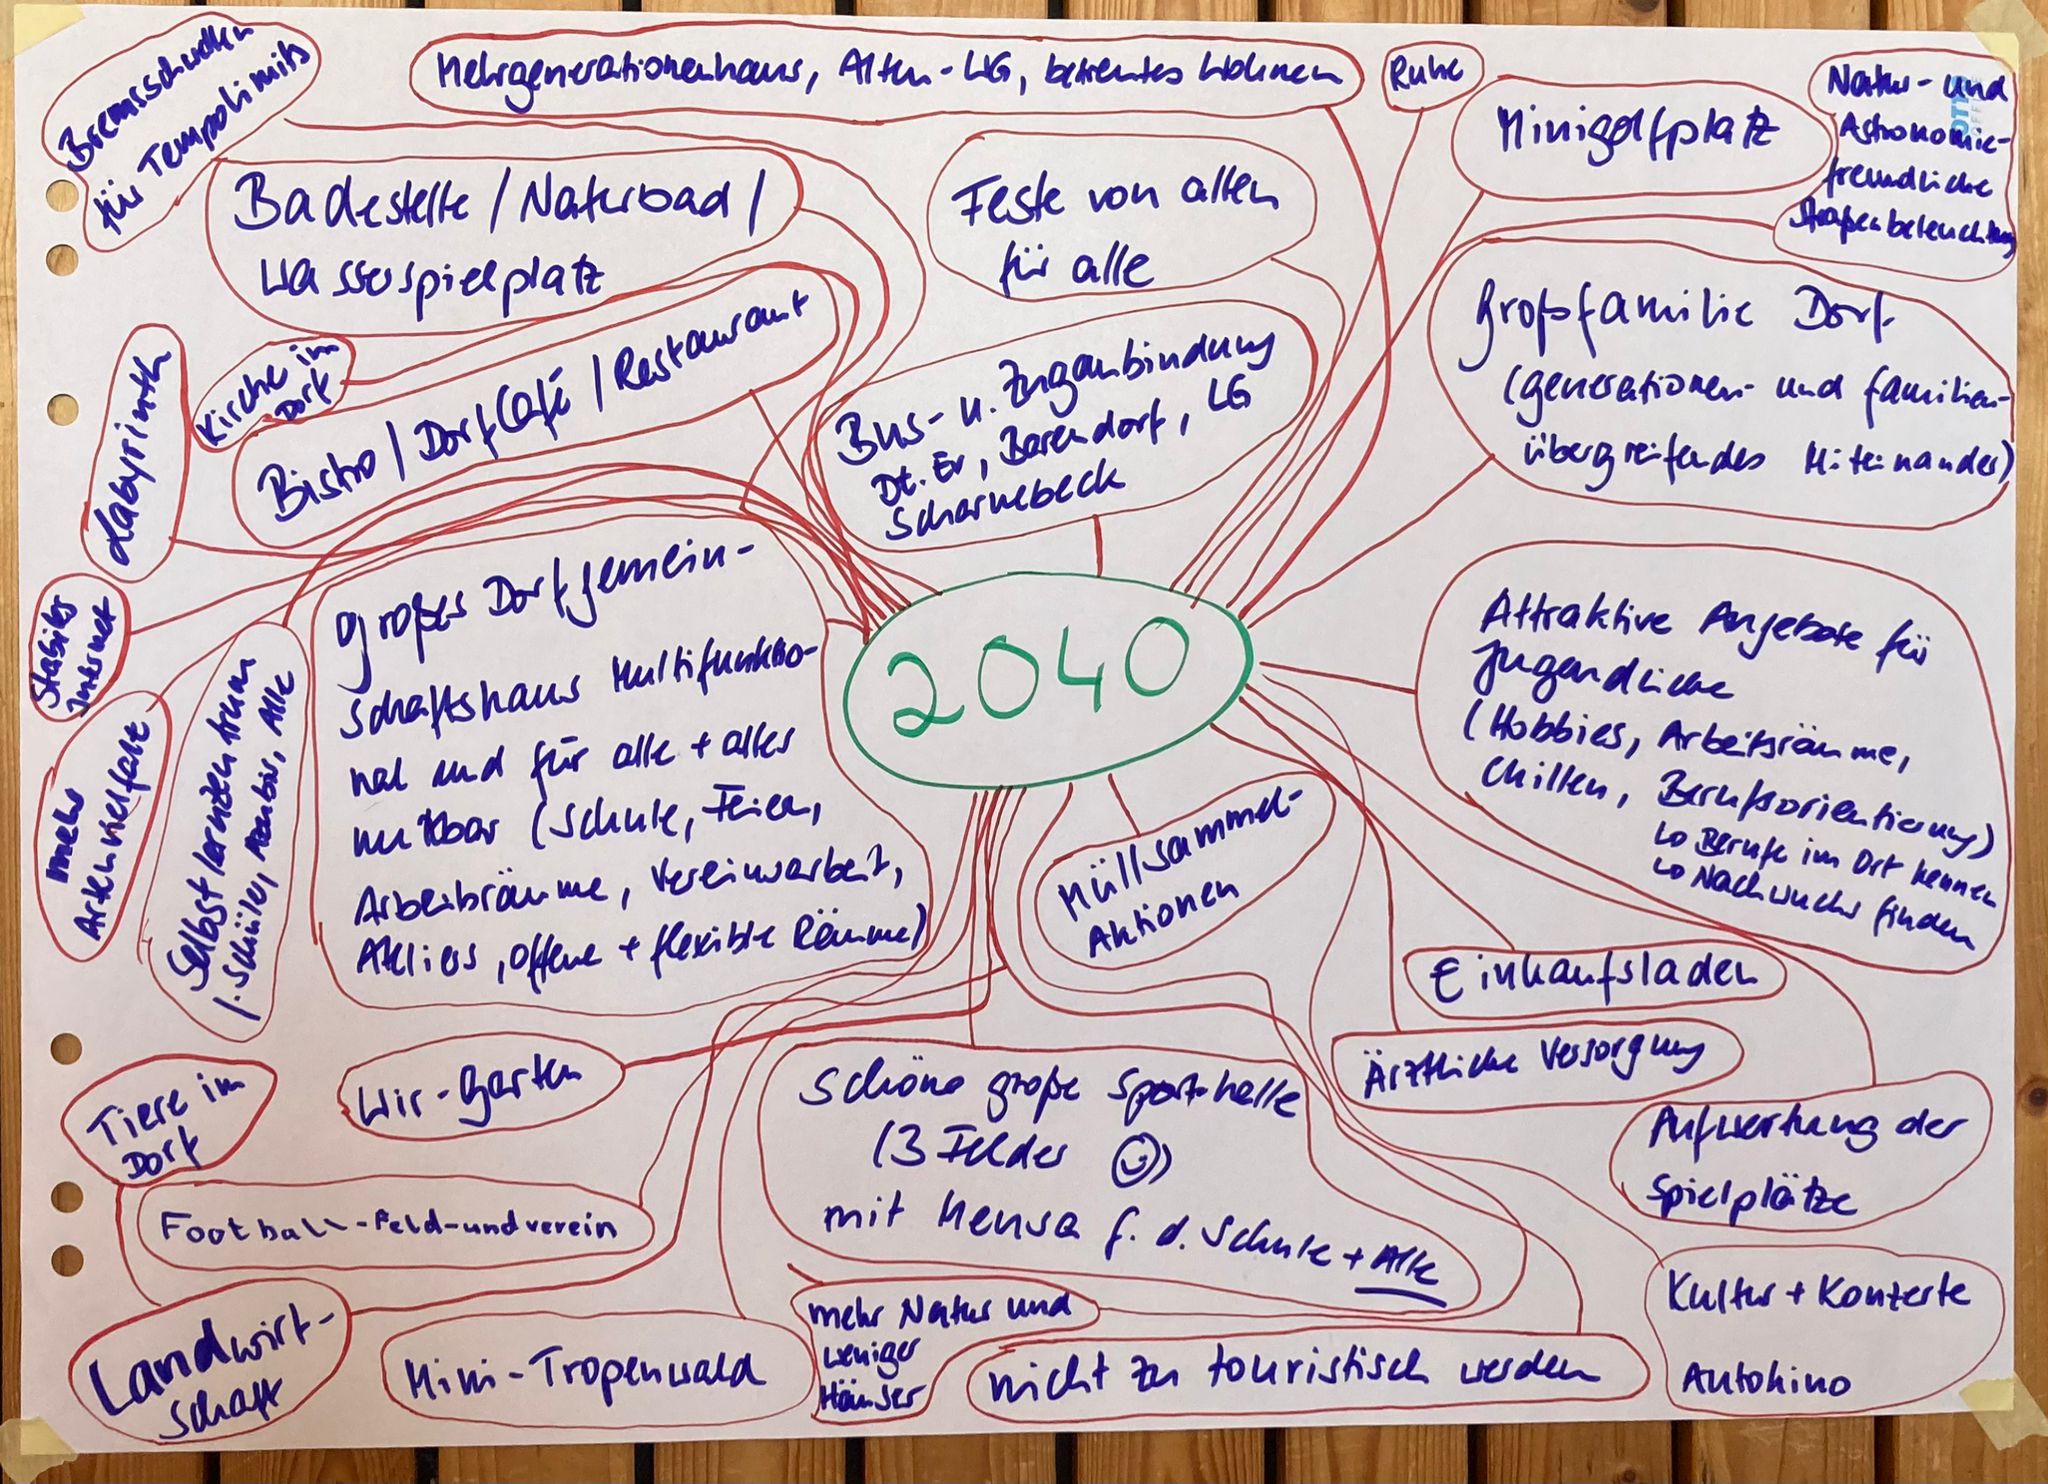 Bremsschwellen
für Tempolimits
Mehrgenerationenhaus, Alten-WG, betreutes Wohnen
Ruhe
Minigolfplatz
Natur- und
Astronomie-
freundliche
Straßenbeleuchtung
Badestelle / Naturbad /
Wasserspielplatz
Feste von allen
für alle
Großfamilie Dorf
(generationen- und familien-
übergreifendes Miteinander)
Kirche im
Dorf
Bistro / Dorfcafé / Restaurant
Bus- u. Zuganbindung
Dt. Ev, Barendorf, LG
Scharnebeck
Labyrinth
Stabiles
Internet
mehr
Artenvielfalt
Selbstlernzentrum
f. Schüler, Azubis, Alle
großes Dorfgemein-
schaftshaus Multifunktio-
nal und für alle + alles
nutzbar (Schule, Feiern,
Arbeitsräume, Vereinsarbeit,
Ateliers, offene + flexible Räume)
2040
Attraktive Angebote für
Jugendliche
(Hobbies, Arbeitsräume,
Chillen, Berufsorientierung)
↳ Berufe im Ort kennen
↳ Nachwuchs finden
Müllsammel-
Aktionen
Einkaufsladen
Ärztliche Versorgung
Aufwertung der
Spielplätze
Tiere im
Dorf
Wir-Garten
Schöne große Sporthalle
(3 Felder ☺)
mit Mensa f. d. Schule + Alle
Football-Feld-und verein
Landwirt-
schaft
Mini-Tropenwald
mehr Natur und
weniger
Häuser
nicht zu touristisch werden
Kultur + Konzerte
Autokino